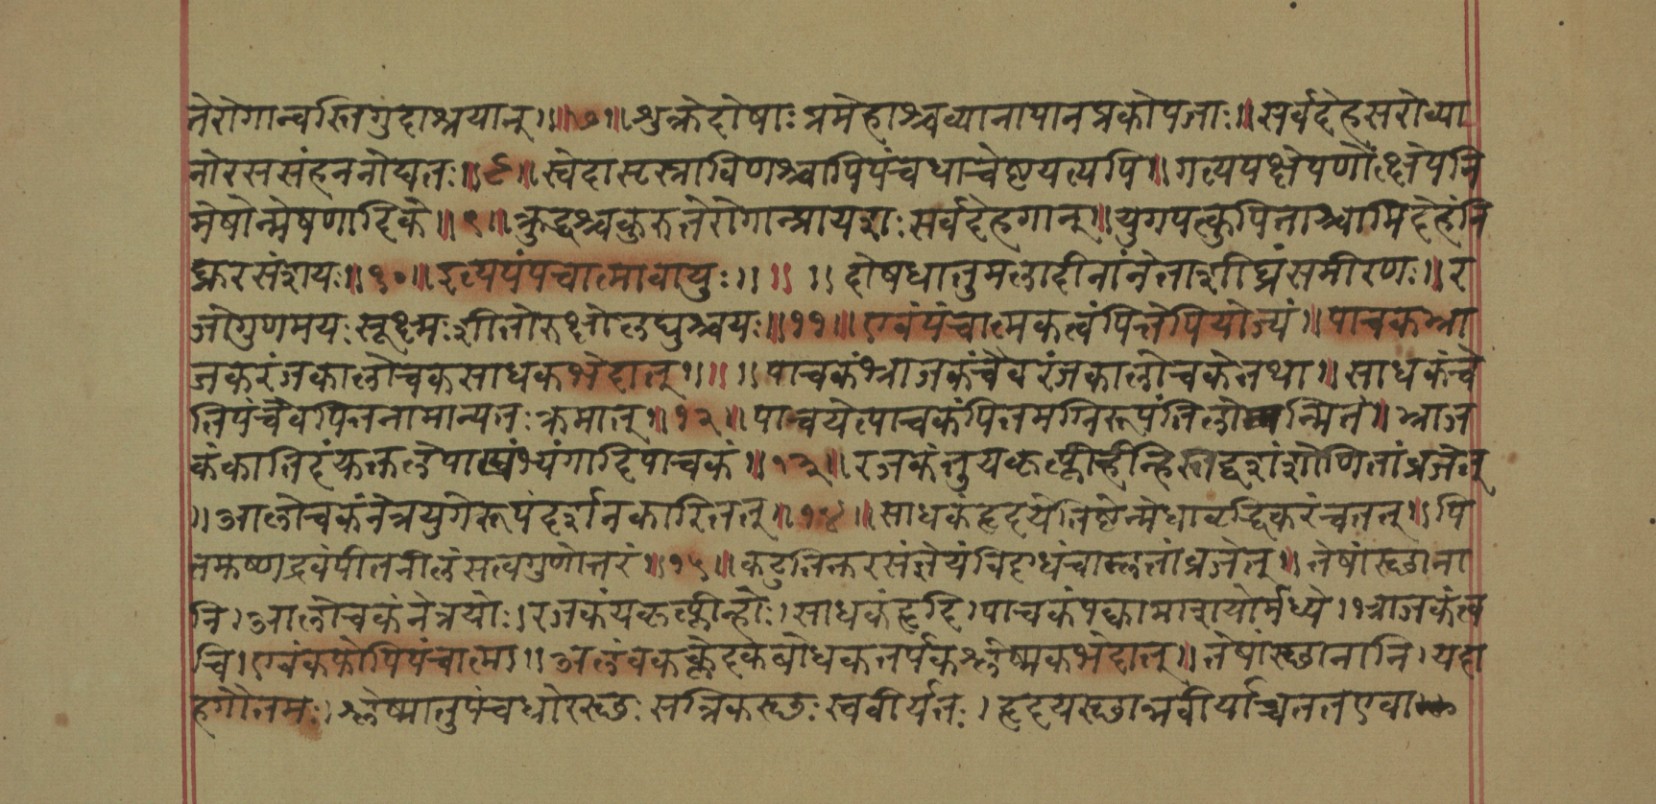 ते रोगान्वस्तिगुदाश्रयान् ॥७॥ शुक्रदोषाः प्रमेहाश्चव्यानापानप्रकोपजाः ॥ सर्वदेहसरोव्या
नोरससंहननोद्यतः ॥८॥ स्वेदासृस्त्राविणश्चापिपंचधाचेष्टयत्यपि ॥ गत्यपक्षेपणोत्क्षेपनि
मेषोन्मेषणादिके ॥९॥ क्रुद्धश्चकुरुतेरोगान्प्रायशः सर्वदेहगान् ॥ युगपत्कुपिताश्चामिदेहंभि
द्युरसंशयः ॥१०॥ इत्ययंपंचात्मावायुः ॥ ॥ ॥ दोषधातुमलादीनांनेताशीघ्रंसमीरणः ॥ र
जोगुणमयः सूक्ष्मः शीतोरुक्षोलघुश्चयः ॥११॥ एवंपंचात्मकत्वंपित्तेपियोज्यं ॥ पाचकभ्रा
जकरंजकालोचकसाधकभेदात् ॥ ॥ ॥ पाचकंभ्राजकंचैवरंजकालोचकेतथा ॥ साधकंचे
तिपंचैवपित्तनामान्यतः क्रमात् ॥१२॥ पाचयेत्पाचकंपित्तमग्निरूपंतिलोन्मितं ॥ भ्राज
कंकांतिदंयक्तलेपाभ्यंगादिपाचकं ॥१३॥ रजकंतुयकृत्प्लीह्नोस्तद्दृशंशोणितांव्रजेत्
॥ आलोचकंनेत्रयुगेरूपदर्शनकारितत् ॥१४॥ साधकंहृदयेतिष्ठेन्मेधावृद्धिकरंचतत् ॥ पि
त्तमुष्णद्रवंपीतनीलंसत्वगुणोत्तरं ॥१५॥ कटुतिक्तरसंज्ञेयंविदग्धंचाम्लतांव्रजेत् ॥ तेषांस्छाना
नि । आलोचकंनेत्रयोः । रजकंयकृत्प्लीन्होः । साधकंहृदि । पाचकंपक्वामाशयोर्मध्ये । भ्राजकंत्व
चि । एवंकफोपिपंचात्मा ॥ अलंवकक्लेदकबोधकतर्पकश्लेष्मकभेदात् ॥ तेषांस्छानानि । यदा
हगौतमः । श्लेष्मातुपंचधोरस्छः सत्रिकस्छः स्ववीर्यतः । हृदयस्छान्नवीर्याच्चततएवा